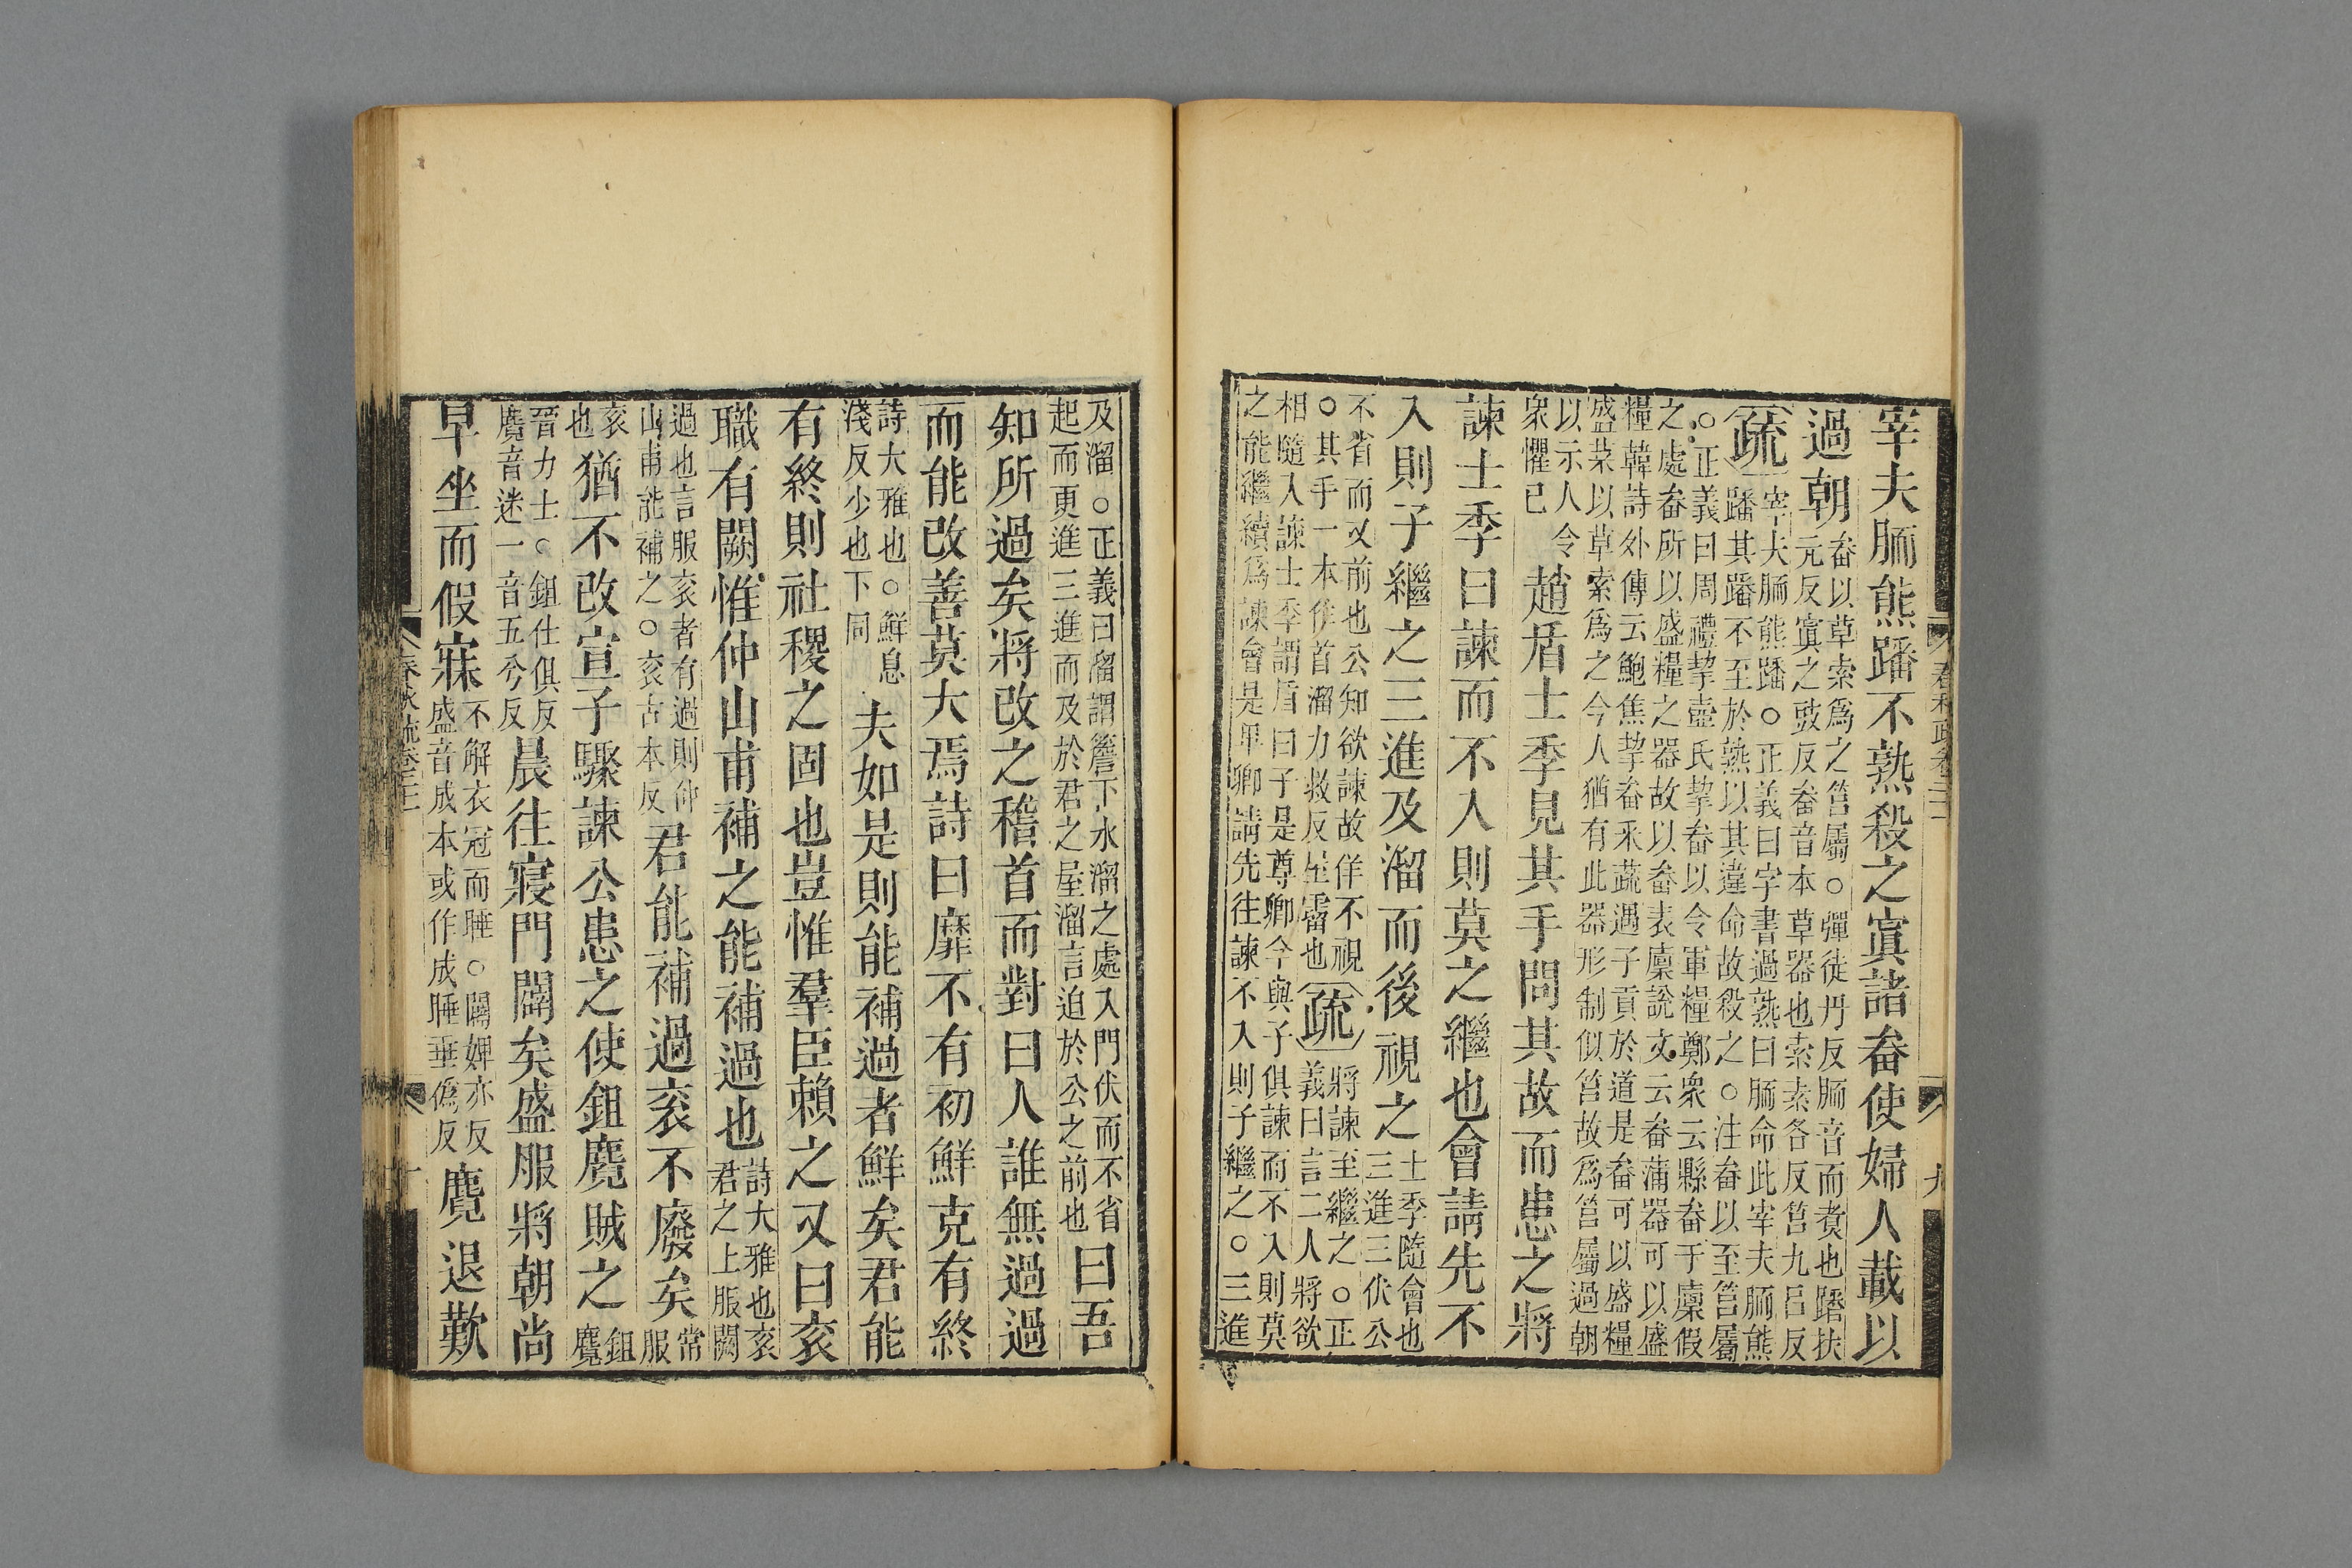 宰夫胹熊蹯不熟殺之寘諸畚使婦人載以
過朝
畚以草索爲之筥屬○彈徒丹反胹音而煑也蹯扶
元反寘之豉反畚音本草器也索素各反筥九呂反
疏
宰夫胹熊蹯○正義曰字書過熟曰胹命此宰夫胹熊
蹯其蹯不至於熟以其違命故殺之○注畚以至筥屬
○正義曰周禮挈壺氏挈畚以令軍糧鄭衆云縣畚于廩假
之處畚所以盛糧之器故以畚表廩說文云畚蒲器可以盛
糧韓詩外傳云鮑焦挈畚采蔬遇子貢於道是畚可以盛糧
盛菜以草索爲之今人猶有此器形制似筥故爲筥屬過朝
以示人令
衆懼已
趙盾士季見其手問其故而患之將
諫士季曰諫而不入則莫之繼也會請先不
入則子繼之三進及溜而後視之
士季隨會也
三進三伏公
不省而又前也公知欲諫故佯不視
○其手一本作首溜力救反屋霤也
疏
將諫至繼之○正
義曰言二人將欲
相隨入諫士季謂盾曰子是尊卿今與子俱諫而不入則莫
之能繼續爲諫會是卑卿請先往諫不入則子繼之○三進
及溜○正義曰溜謂簷下水溜之處入門伏而不省
起而更進三進而及於君之屋溜言迫於公之前也
曰吾
知所過矣將改之稽首而對曰人誰無過過
而能改善莫大焉詩曰靡不有初鮮克有終
詩大雅也○鮮息
淺反少也下同
夫如是則能補過者鮮矣君能
有終則社稷之固也豈惟羣臣賴之又曰衮
職有闕惟仲山甫補之能補過也
詩大雅也衮
君之上服闕
過也言服衮者有過則仲
山甫能補之○衮古本反
君能補過衮不廢矣
常
服
衮
也
猶不改宣子驟諫公患之使鉏麑賊之
鉏
麑
晉力士○鉏仕俱反
麑音迷一音五兮反
晨往寢門闢矣盛服將朝尚
早坐而假寐
不解衣冠而睡○闢婢亦反
盛音成本或作成睡垂僞反
麑退歎
春秋疏卷二十一
九
十